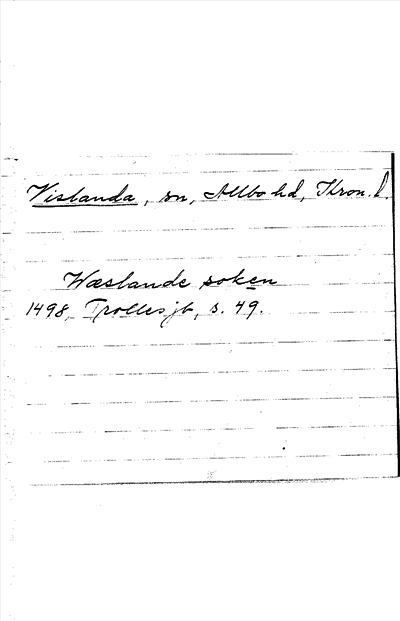 Vislanda, sn, Allbo hd, Kron. l.
Wæslande soken
1498, Trolles jb, s. 49.